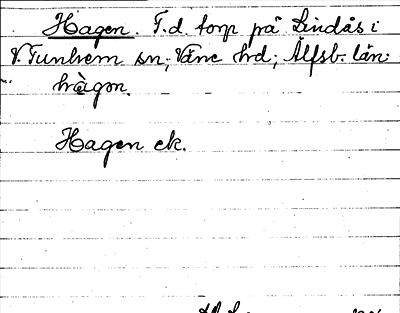 Hagen. T.d. torp på Lindås i
V. Tunhem sn; Väne hd; Älfsb. län.
hàgon.
Hagen ek.